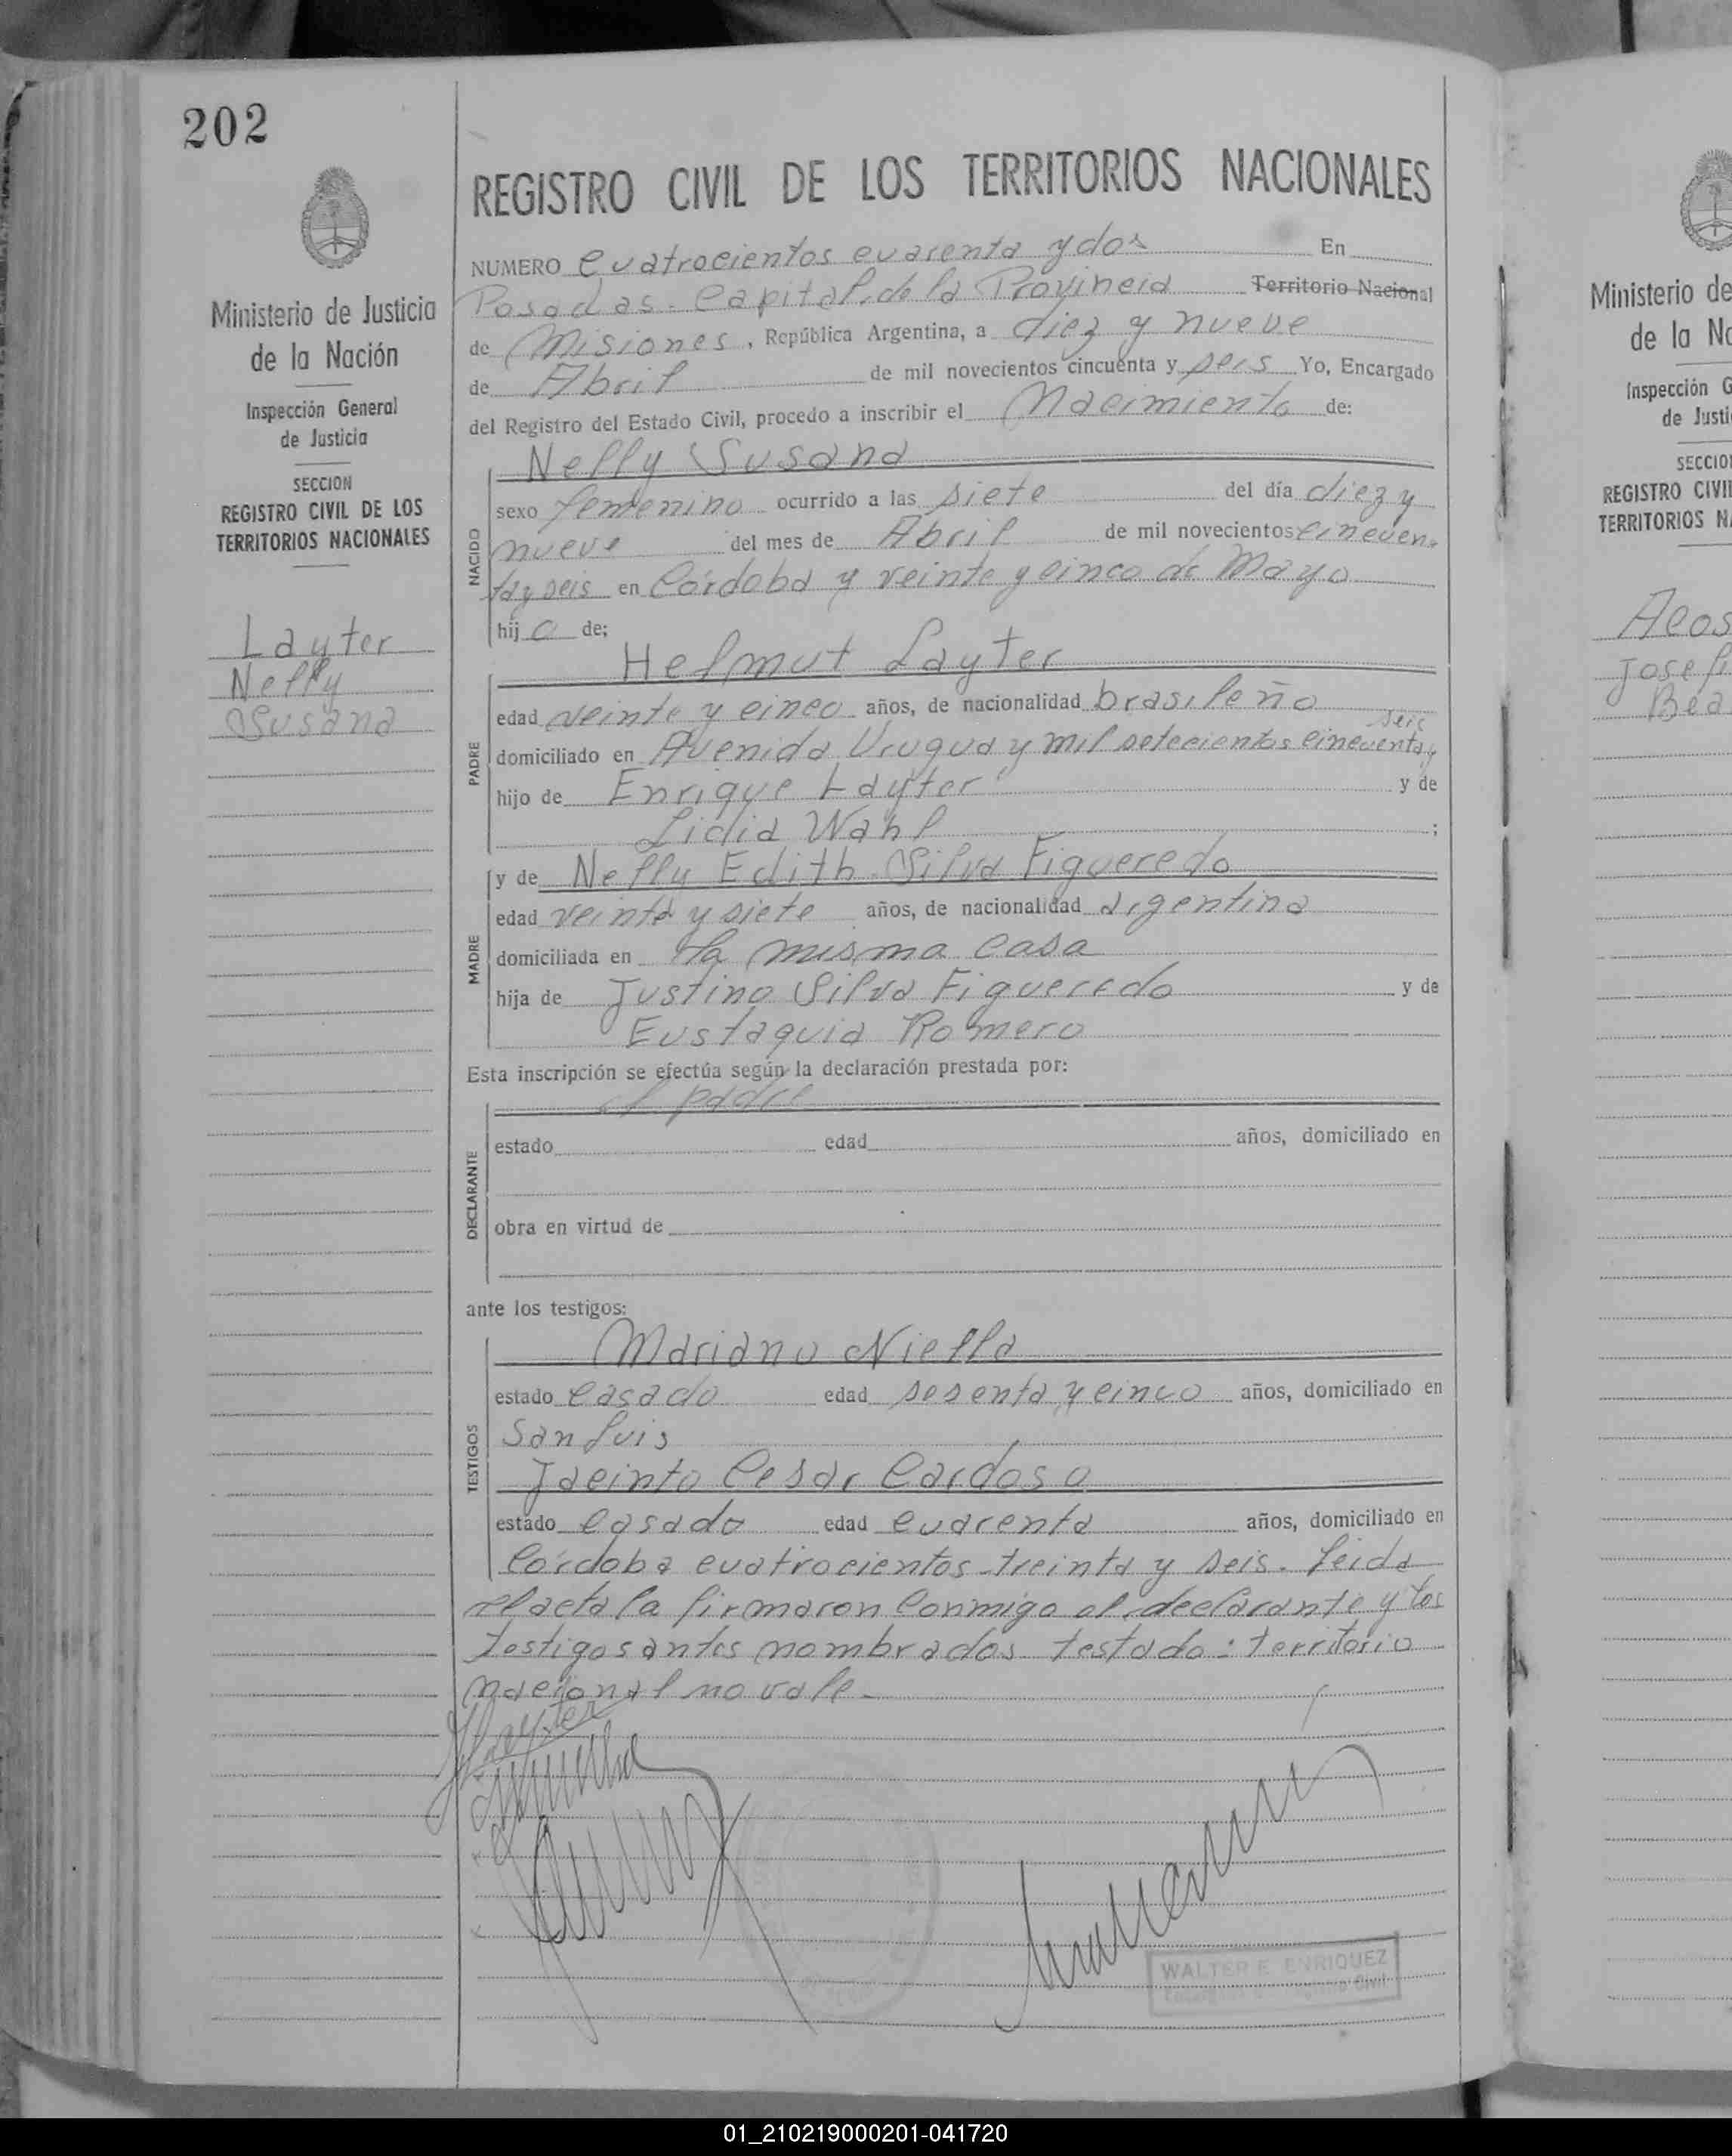 202
Ministerio de Justicia
de la Nación
Inspección General
de Justicia
SECCION
REGISTRO CIVIL DE LOS
TERRITORIOS NACIONALES
Layter
Nelly
Susana
REGISTRO CIVIL DE LOS TERRITORIOS NACIONALES
NUMERO cuatrocientos cuarenta y dos En
Posadas. Capital de la Provincia Territorio Nacional
de Misiones, República Argentina, a diez y nueve
de Abril de mil novecientos cincuenta y seis Yo, Encargado
del Registro del Estado Civil, procedo a inscribir el Nacimiento de:
NACIDO
Nelly Susana
sexo femenino ocurrido a las siete del día diez y
nueve del mes de Abril de mil novecientos cincuen-
ta y seis en Córdoba y veinte y cinco de Mayo
hij a de;
PADRE
Helmut Layter
edad veinte y cinco años, de nacionalidad brasileño
seis
domiciliado en Avenida Uruguay mil setecientos cincuenta y
hijo de Enrique Layter y de
Lidia Wahl ;
MADRE
y de Nelly Edith Silva Figueredo
edad veinte y siete años, de nacionalidad argentina
domiciliada en la misma casa
hija de Justino Silva Figueredo y de
Eustaquia Romero
Esta inscripción se efectúa según la declaración prestada por:
DECLARANTE
el padre
estado edad años, domiciliado en
obra en virtud de
ante los testigos:
TESTIGOS
Mariano Niella
estado casado edad sesenta y cinco años, domiciliado en
San Luis
Jacinto Cesar Cardoso
estado casado edad cuarenta años, domiciliado en
Córdoba cuatrocientos treinta y seis. Leida
el acta la firmaron conmigo el declarante y los
testigos antes nombrados testado: territorio
nacional no vale.
HLayter
WALTER E. ENRIQUEZ
Registro Civil
Ministerio de
de la
Inspección G
de Justi
SECCION
REGISTRO CIVIL
TERRITORIOS N
Acos
Josefi
Bea
01_210219000201-041720